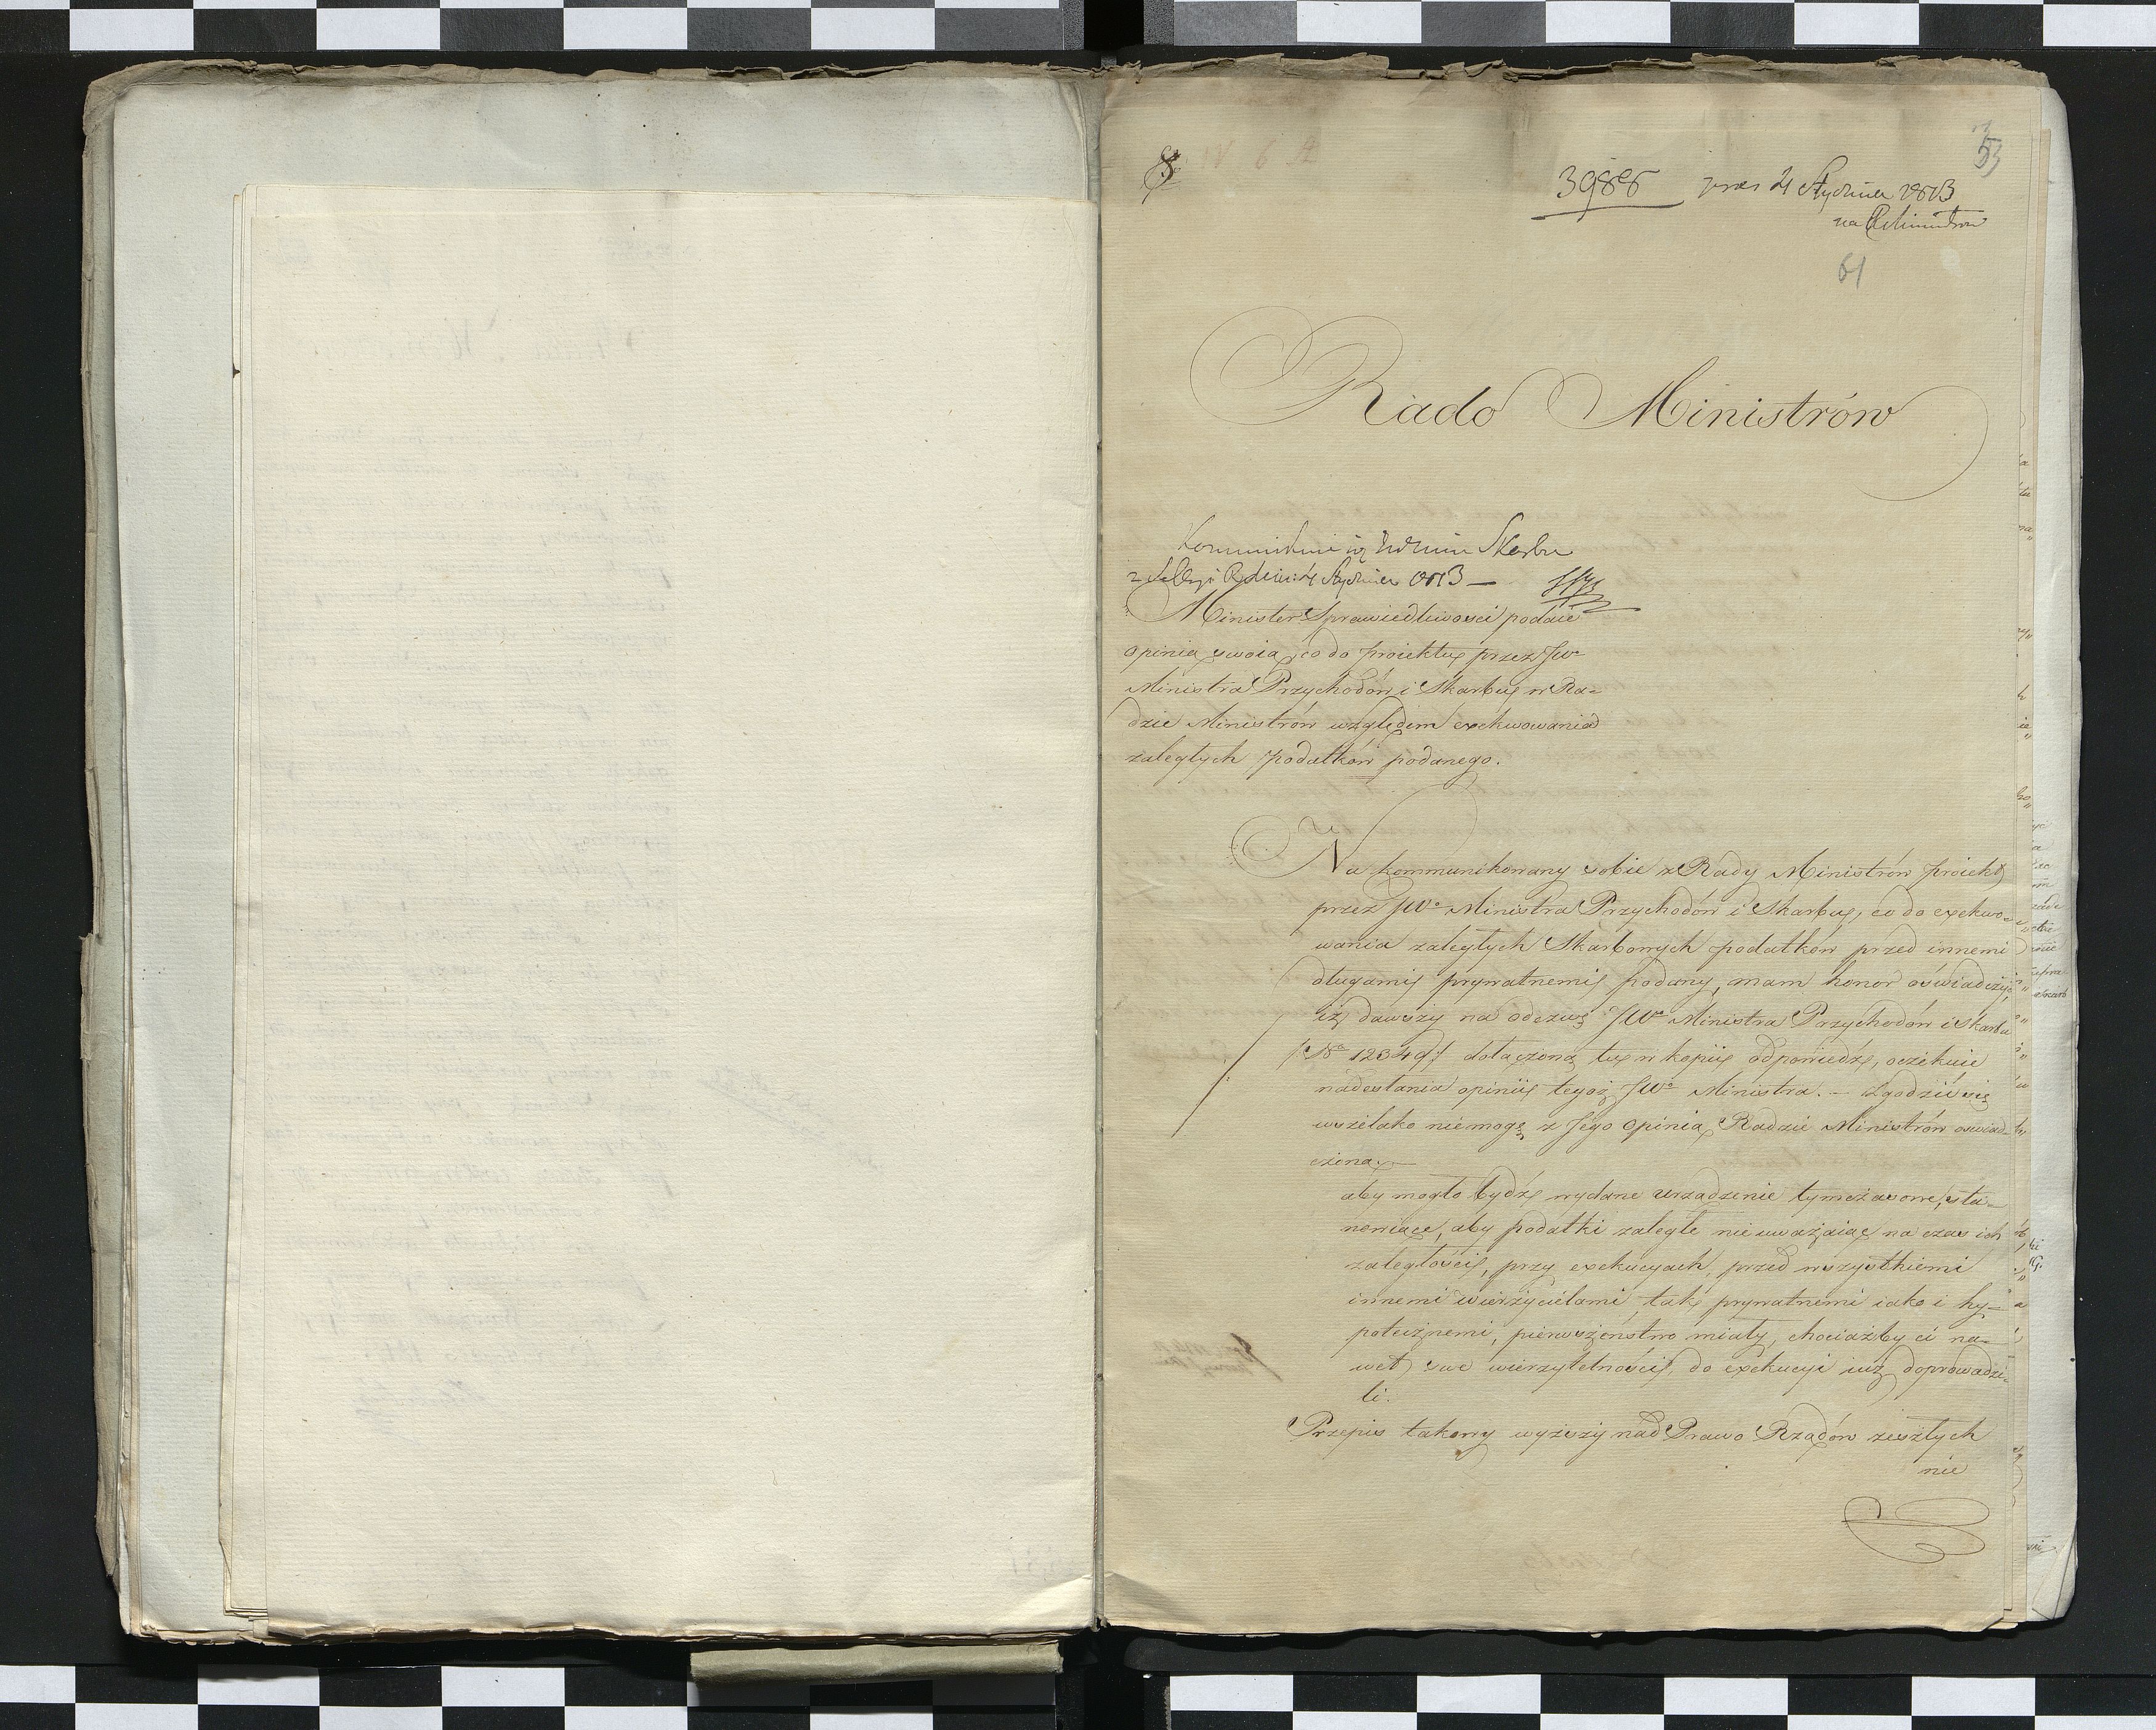 IV 6
53
3988 prez 4 Stycznia 1813
61
Rado Ministrów
Kommunikuie się Skarbu
z Sessyi R dnia 4 Stycznia 1813 —
Minister Sprawiedliwosci podaie
opinią swoią co do proiektu przez JWo
Ministra Przychodów i Skarbu w Ra=
dzie Ministrów względem exekwowania
zaległych podatków podanego.
Na kommunikowany sobie z Rady Ministrów proiekt
przez JWo Ministra Przychodów i Skarbu, co do exekwo=
wania zaległych Skarbowych podatków przed innemi
długami prywatnemi podany, mam honor oświadczyć,
iż dawszy na odezwę JWo Ministra Przychodów i Skarbu
/: No 12349 :/ dołączoną tu w kopii odpowiedź, oczekuie
nadesłania opinii tegoż JWo Ministra. — Zgodzić się
wszelako niemogę z Jego opinią Radzie Ministrów oswiad=
czoną —
aby mogło bydź wydane urządzenie tymczasowe, sta=
nowiące, aby podatki zaległe nieuważaiąc na czas ich
zaległości, przy exekucyach, przed wszystkiemi
innemi wierzycielami tak prywatnemi iako i hy=
potecznemi, pierwszeństwo miały, chociażby ci na=
wet swe wierzytelności, do exekucyi iuż doprowadzi=
li.
Przepis takowy wyższy nad Prawo Rządów zeszłych
nie